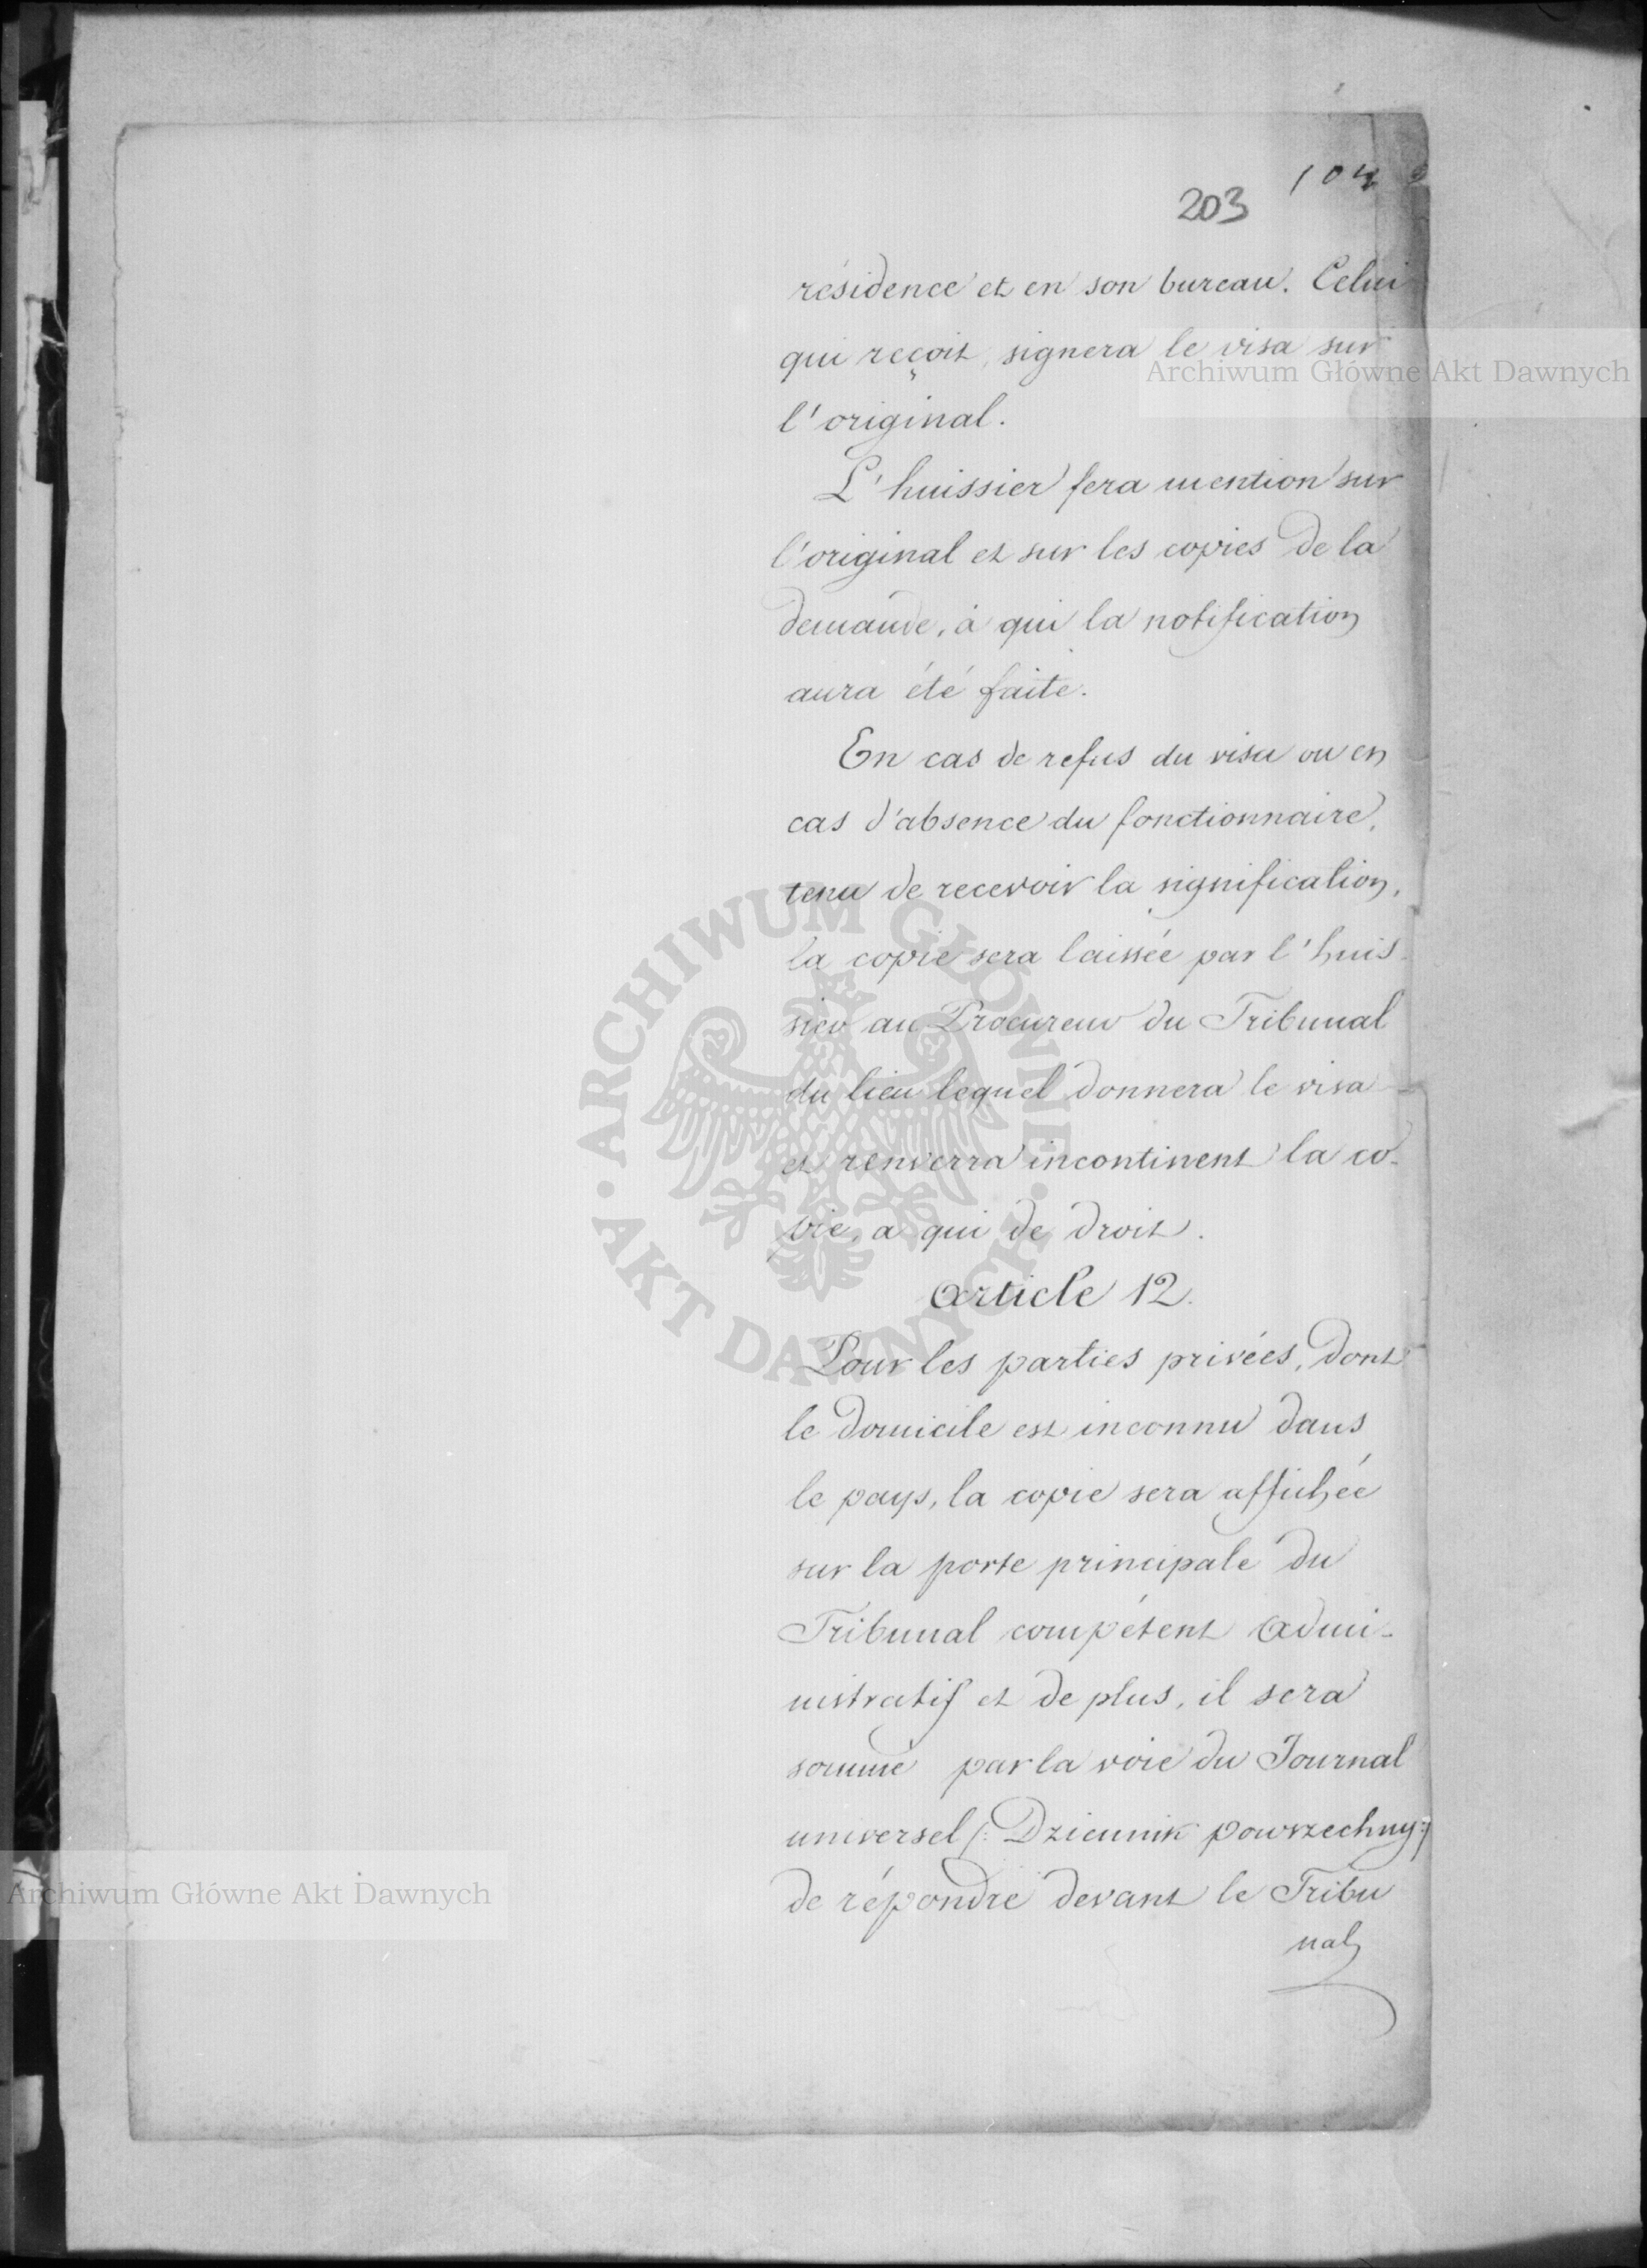 104
203
résidence et en son bureau. Celui
qui reçoit, signera le visa sur
Archiwum Główne Akt Dawnych
l'original.
L'huissier fera mention sur
l'original et sur les copies de la
demande, à qui la notification
aura été faite.
En cas de refus du visa ou en
cas d'absence du fonctionnaire,
tenu de recevoir la signification,
la copie sera laissée par l'huis-
sier au Procureur du Tribunal
du lieu lequel donnera le visa
et renverra incontinent la co-
pie, a qui de droit.
ARCHIWUM GŁÓWNE · AKT DAWNYCH ·
Article 12.
Pour les parties privées, dont
le domicile est inconnu dans
le pays, la copie sera affichée
sur la porte principale du
Tribunal compétent Admi-
nistratif et de plus, il sera
sommé par la voie du Journal
universel /: Dziennik powszechny :/
de répondre devant le Tribu
Archiwum Główne Akt Dawnych
nal